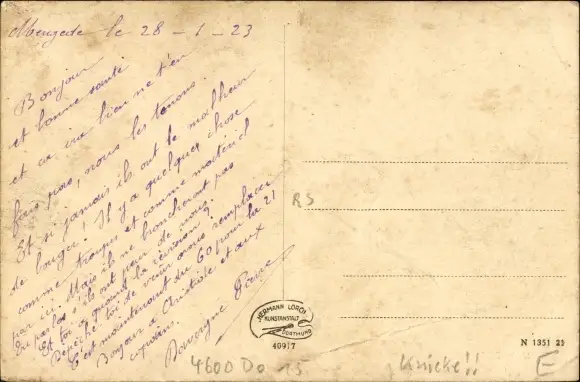 Mengede le 28-1-23
Bonjour
et bonne santé
et ça ira bien ne t'en
fais pas, nous les tenons.
Et si jamais ils ont le malheur
de bouger! Il y a quelque chose
comme troupes et comme matériel
par ici. Mais ils ne broncheront pas
ils ont peur de nous.
Et toi à quand la révision?
Dépêche toi de venir nous remplacer
C'est maintenant du 60 pour la 21
Bonjour à Aristide et aux
copains.
HERMANN LORCH
KUNSTANSTALT
DORTMUND
409/7
N 1351 23
RS
4600 Do 15
Knicke!!
E